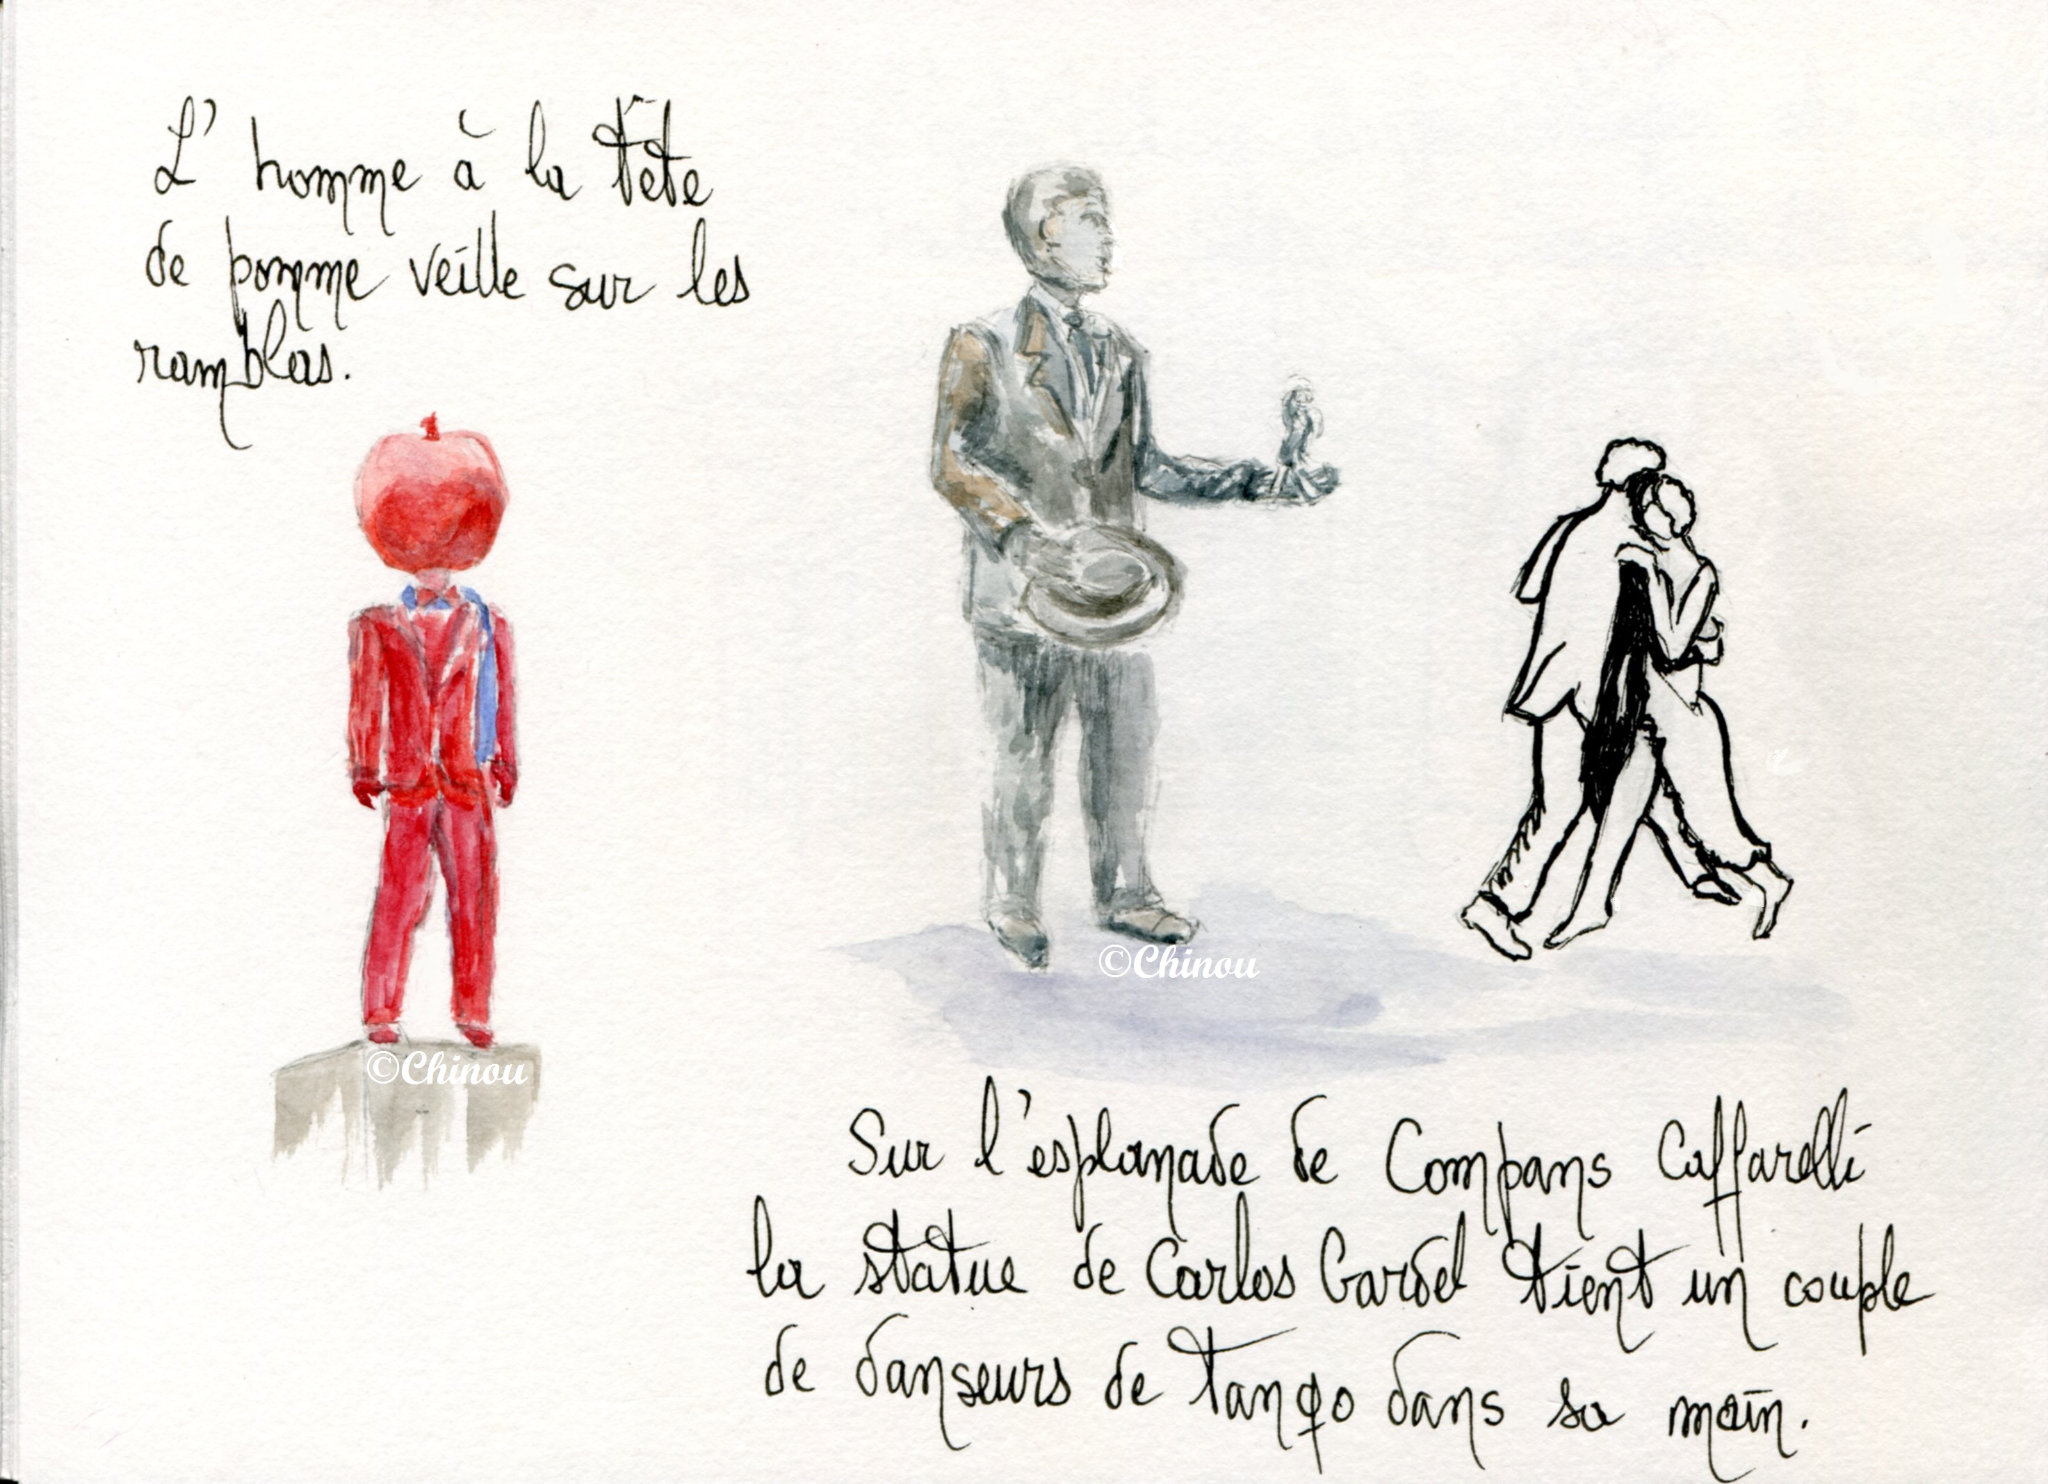 L'homme à la tête
de pomme veille sur les
ramblas.
©Chinou
©Chinou
Sur l'esplanade de Compans Caffarelli
la statue de Carlos Gardel tient un couple
de danseurs de tango dans sa main.